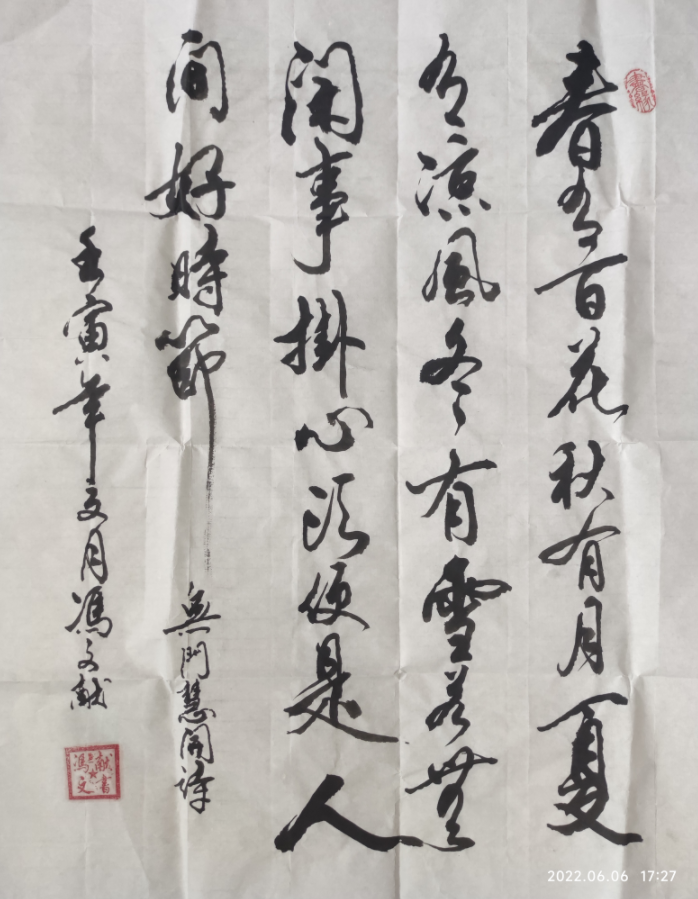 春有百花秋有月夏
有涼風冬有雪若無
閑事掛心頭便是人
間好時節
無門慧開詩
壬寅年五月馮文献
馮文献書
2022.06.06 17:27